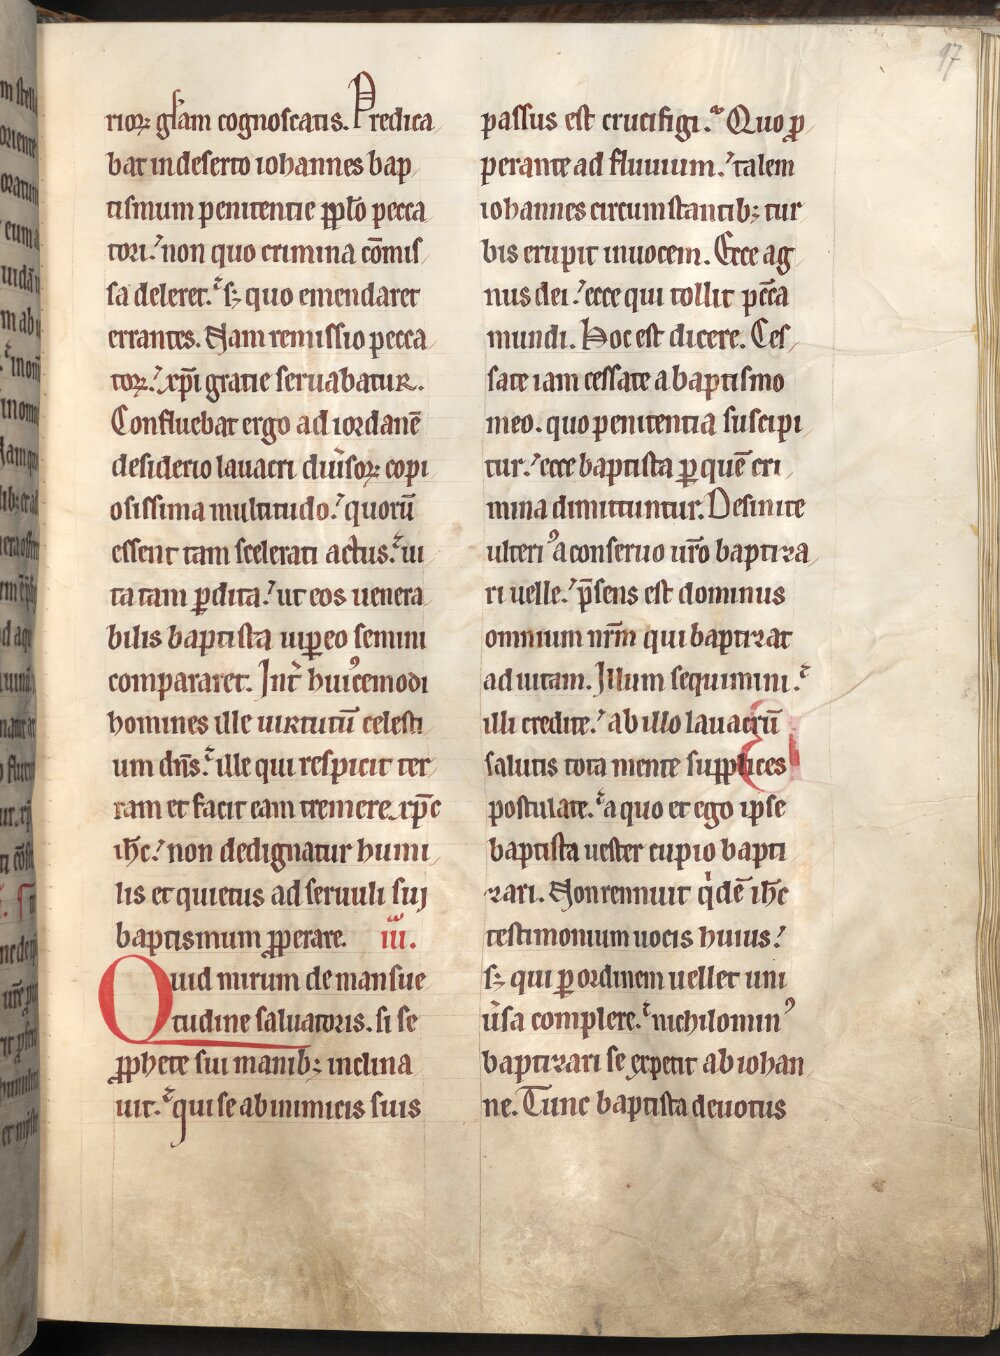 97
rioꝝ gl̄am cognoscatis. Predica
bat in deserto iohannes bap
tismum penitentie ꝓpt̄o pecca
tori. non quo crimina cōmis
sa deleret. sꝫ quo emendaret
errantes. Nam remissio pecca
toꝝ. xp̄i gratie seruabatur.
Confluebat ergo ad iordanē
desiderio lauacri diu̾soꝝ copi
osissima multitudo. quorū
essent tam scelerati actus. ui
ta tam ꝑdita. ut eos uenera
bilis baptista uiꝑeo semini
compararet. Int̾ huiꝰcemodi
homines ille uirtutū celesti
um dn̄s. ille qui respicit ter
ram et facit eam tremere xp̄c
ih̄c. non dedignatur humi
lis et quietus ad seruuli suj
baptismum ꝓperare. iii.
Quid mirum de mansue
tudine saluatoris. si se
ꝓphete sui manibꝫ inclina
uit. qui se ab inimicis suis
passus est crucifigi. Quo ꝓ
perante ad fluuium. talem
iohannes circumstantibꝫ tur
bis erupit in uocem. Ecce ag
nus dei. ecce qui tollit pc̄ca
mundi. Hoc est dicere. Ces
sate iam cessate a baptismo
meo. quo penitentia suscipi
tur. ecce baptista ꝑ quē cri
mina dimittuntur. Desinite
ulteriꝰ a conseruo ur̄o baptiza
ri uelle. p̄sens est dominus
omnium nr̄m qui baptizat
ad uitam. Illum sequimini.
illi credite. ab illo lauacrū
salutis tota mente supplices
postulate. a quo et ego ipse
baptista uester cupio bapti
zari. Non rennuit qͥdē ih̄c
testimonium uocis huius.
sꝫ qui ꝑ ordinem uellet uni
u̾sa complere. nichilominꝰ
baptizari se expetit ab iohan
ne. Tunc baptista deuotus